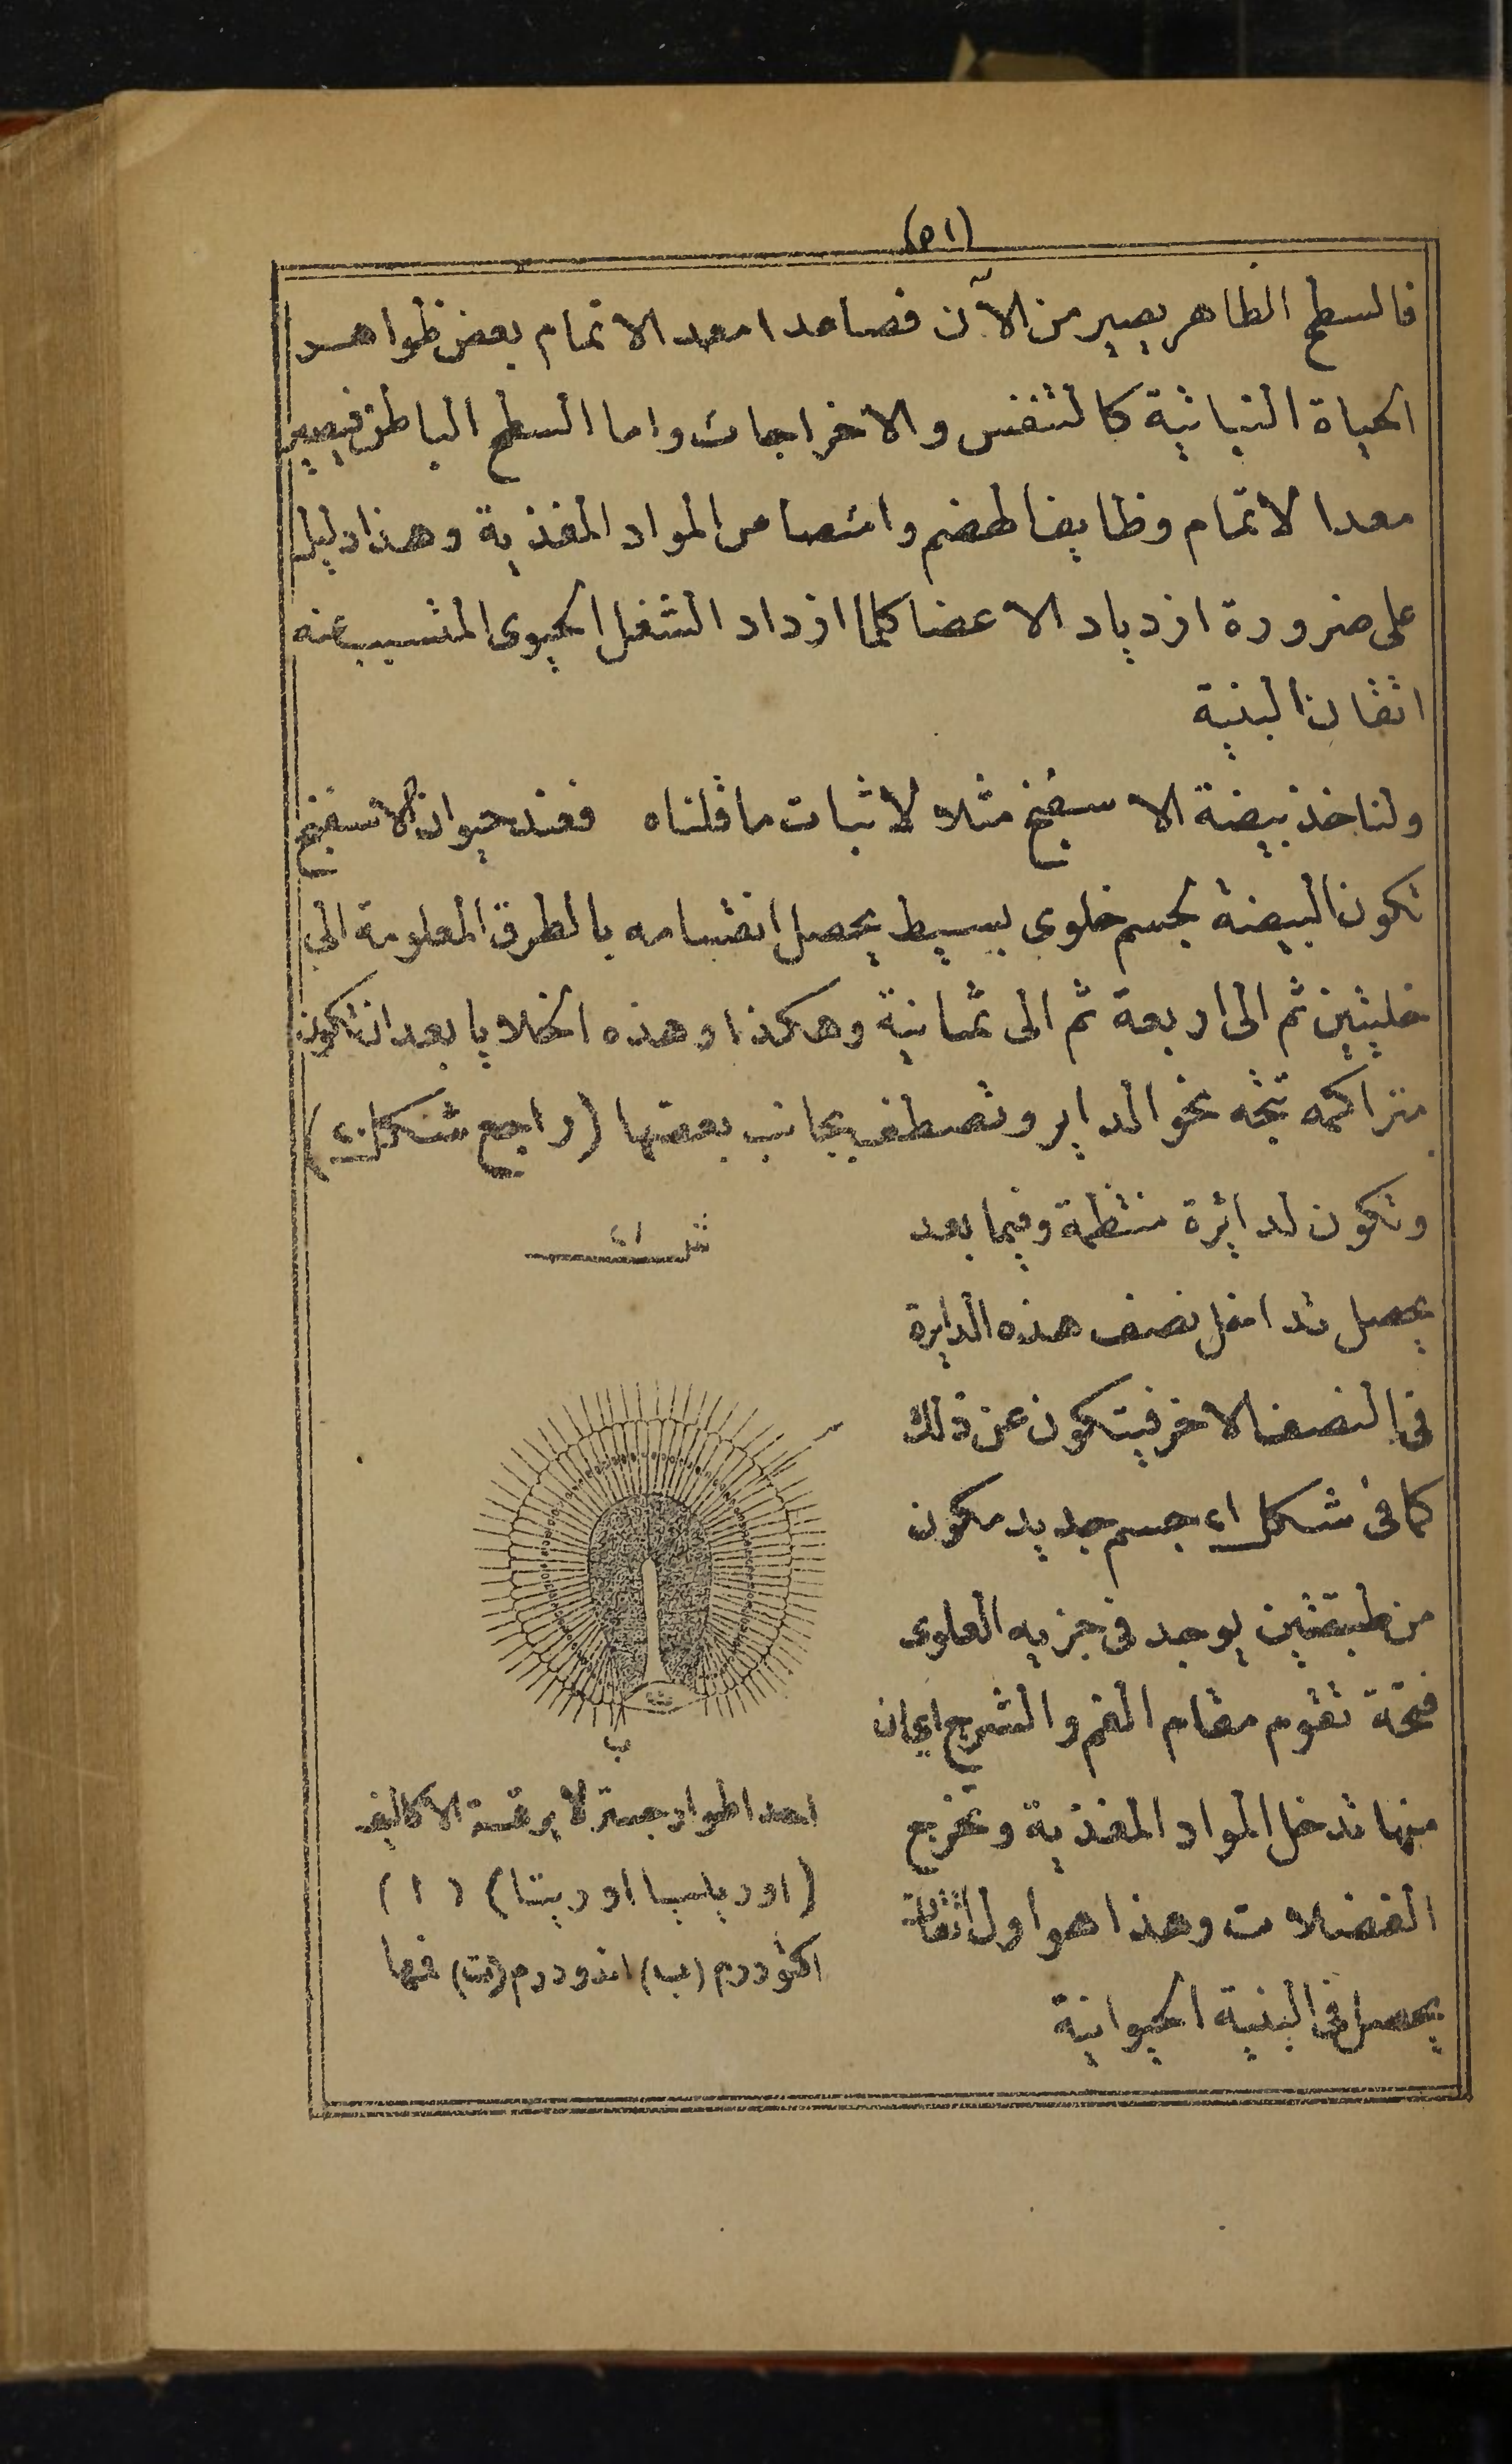 (٥١)
فالسطح الظاهر يصير من الآن فصاعدا معد الاتمام بعض ظواهر
الحياة النباتية كالتنفس والاخراجات واما السطح الباطن فيصير
معدا لاتمام وظايف الهضم وامتصاص المواد المغذية وهذا دليل
على ضرورة ازدياد الاعضا كلما ازداد الشغل الحيوى المتسبب عنه
اتقان البنية
ولناخذ بيضة الاسفنج مثلا لاثبات ما قلناه فعند حيوان الاسفنج
تكون البيضة كجسم خلوى بسيط يحصل انقسامه بالطرق المعلومة الى
خليتين ثم الى اربعة ثم الى ثمانية وهكذا وهذه الخلايا بعد ان تكون
متراكمه تتجه نحو الداير وتصطف بجانب بعضها (راجع شكل)
وتكون لدائرة منتظمة وفيما بعد
يحصل تداخل نصف هذه الدايرة
فى النصف الاخر فيتكون عن ذلك
كما فى شكل جسم جديد مكون
من طبقتين يوجد فى جزيه العلوى
فتحة تقوم مقام الفم والشرج اى ان
منها تدخل المواد المغذية وتخرج
الفضلات وهذا هو اول اتقان
يحصل فى البنية الحيوانية
ب
احد اطوار الاكاليف
(اوريليا اوريتا) (١)
اكتودرم (ب) اندودرم (ت) فمها